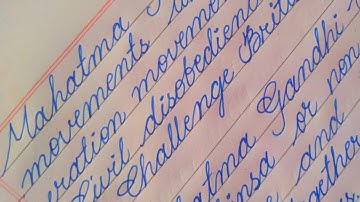 Mahatma
movements
eration movement
Civil disobedience
Challenge Britis
atma Gandhi
insa or non
e and
together